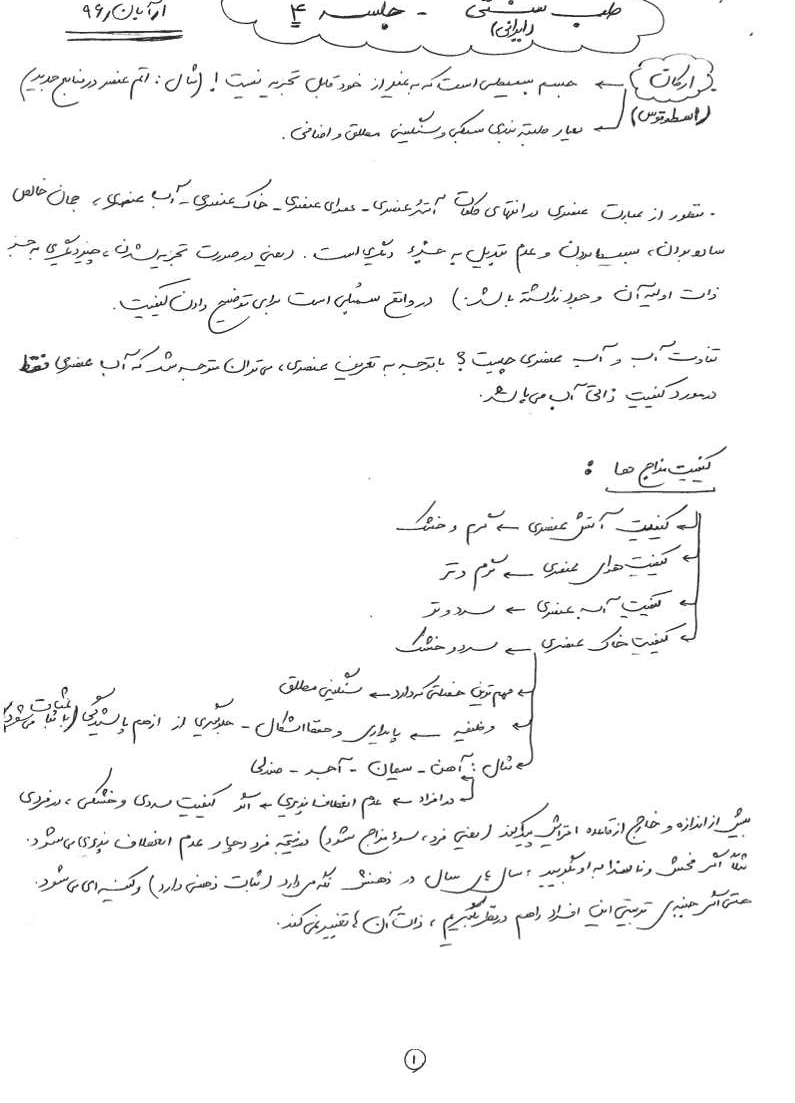 طب سنتی (ایرانی) - جلسه ۴
۱ر آبان ر۹۶
ارکان (اسطقوس)
← جسم بسیطی است که به غیر از خود قابل تجزیه نیست! (مثال: اتم عنصر در منابع جدید)
← معیار طبقه بندی سبکی و سنگینی مطلق و اضافی.
. منظور از عبارت عنصری در انتهای کلمات آتش عنصری - هوای عنصری - خاک عنصری - آب عنصری، همان خالص
ساده بودن، بسیط بودن و عدم تبدیل به جزء دیگری است. (یعنی در صورت تجزیه شدن، چیز دیگری به جز
ذات اولیه آن وجود نداشته باشد.) در واقع سمبلی است برای توضیح دادن کیفیت.
تفاوت آب و آب عنصری چیست؟ با توجه به تعریف عنصری، می توان متوجه شد که آب عنصری فقط
در مورد کیفیت ذاتی آب می باشد.
کیفیت مزاج ها :
← کیفیت آتش عنصری ← گرم و خشک
← کیفیت هوای عنصری ← گرم و تر
← کیفیت آب عنصری ← سرد و تر
← کیفیت خاک عنصری ← سرد و خشک
← مهم ترین خصلتی که دارد ← سنگینی مطلق
← وظیفه ← پایداری و حفظ اشکال - جلوگیری از از هم پاشیدگی (باعث ثبات می شود)
← مثال: آهن - سیمان - آجر - صندلی
← در افراد ← عدم انعطاف پذیری ← اگر کیفیت سردی و خشکی، در فردی
بیش از اندازه و خارج از قاعده افزایش پیدا کند (یعنی فرد، سوء مزاج شود) در نتیجه فرد دچار عدم انعطاف پذیری می شود.
مثلاً اگر فحش و ناسزا به او بگویید، سال های سال در ذهنش نگه می دارد (ثبات ذهنی دارد) و کینه ای می شود.
حتی اگر جنبه ی تربیتی این افراد را هم در نظر بگیریم، ذات آن ها تغییر نمی کند.
۱